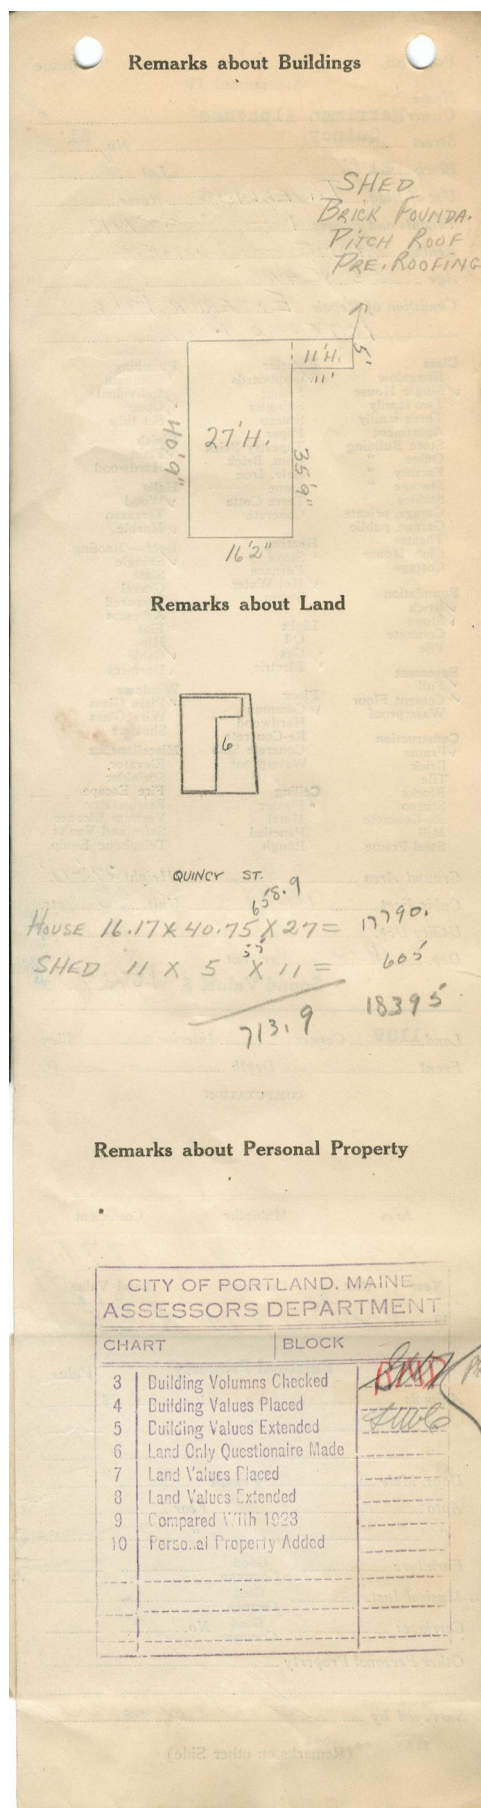 Remarks about Buildings
SHED
BRICK FOUNDA.
PITCH ROOF
PRE. ROOFING
11'H.
5'
11'
27'H.
40'9"
35'9"
16'2"
Remarks about Land
6
QUINCY ST.
658.9
HOUSE 16.17 X 40.75 X 27 = 17790.
55
SHED 11 X 5 X 11 = 605
713.9
18395
Remarks about Personal Property
CITY OF PORTLAND, MAINE
ASSESSORS DEPARTMENT
CHART BLOCK
3 Building Volumns Checked
4 Building Values Placed
5 Building Values Extended
6 Land Only Questionaire Made
7 Land Values Placed
8 Land Values Extended
9 Compared With 1923
10 Personal Property Added